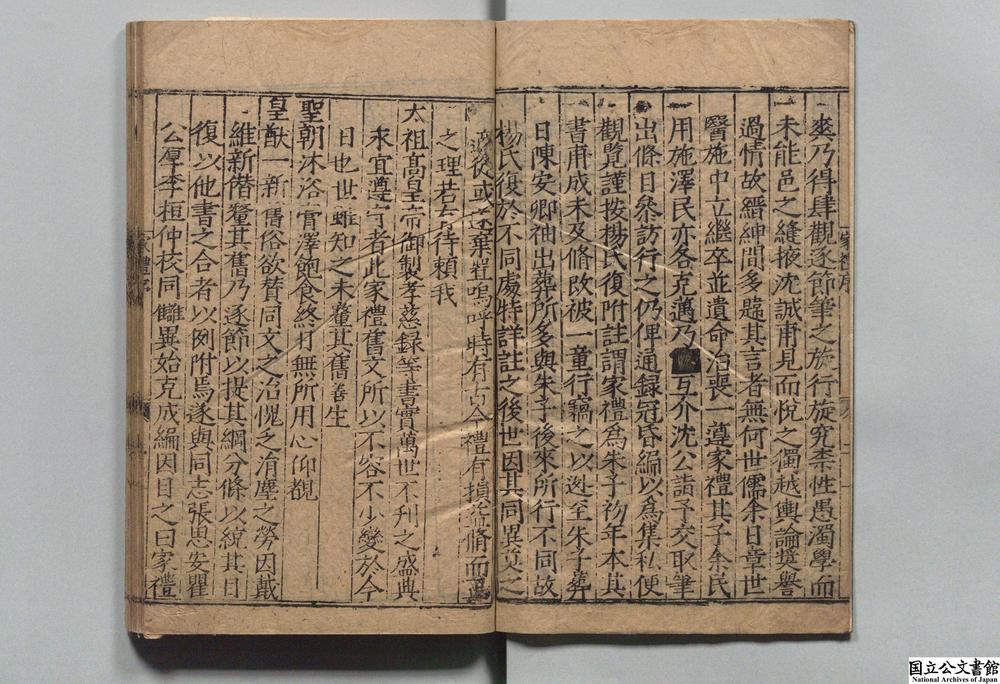 爽乃得肆觀逐節筆之旋行旋究柰性愚濁學而
未能邑之縫掖沈誠甫見而悅之獨越輿論奬譽
過情故縉紳間多韙其言者無何世儒余日章世
醫施中立繼卒並遺命治喪一遵家禮其子余民
用施澤民亦各克邁乃 互介沈公詣予交取筆
出條目叅訪行之仍俾通録冠昏編以爲集私便
觀覽謹按楊氏復附註謂家禮爲朱子初年本其
書甫成未及脩改被一童行竊之以逃至朱子葬
日陳安卿袖出葬所多與朱子後來所行不同故
楊氏復於不同處特詳註之後世因其同異莫之
適從或遂棄 嗚呼時有古今禮有損益脩而正
之理若有待頼我
太祖高皇帝御製孝慈録等書實萬世不刋之盛典
宜遵守者此家禮舊文所以不容不少變於今
日也世雖知之未釐其舊善生
聖朝沐浴膏澤飽食終日無所用心仰覩
皇猷一新舊俗欲賛同文之治愧乏涓塵之勞因戴
維新僭釐其舊乃逐節以提其綱分條以統其目
復以他書之合者以例附焉遂與同志張思安瞿
公厚李桓仲校同讎異始克成編因目之曰家禮
家禮序
家禮序
国立公文書館
National Archives of Japan